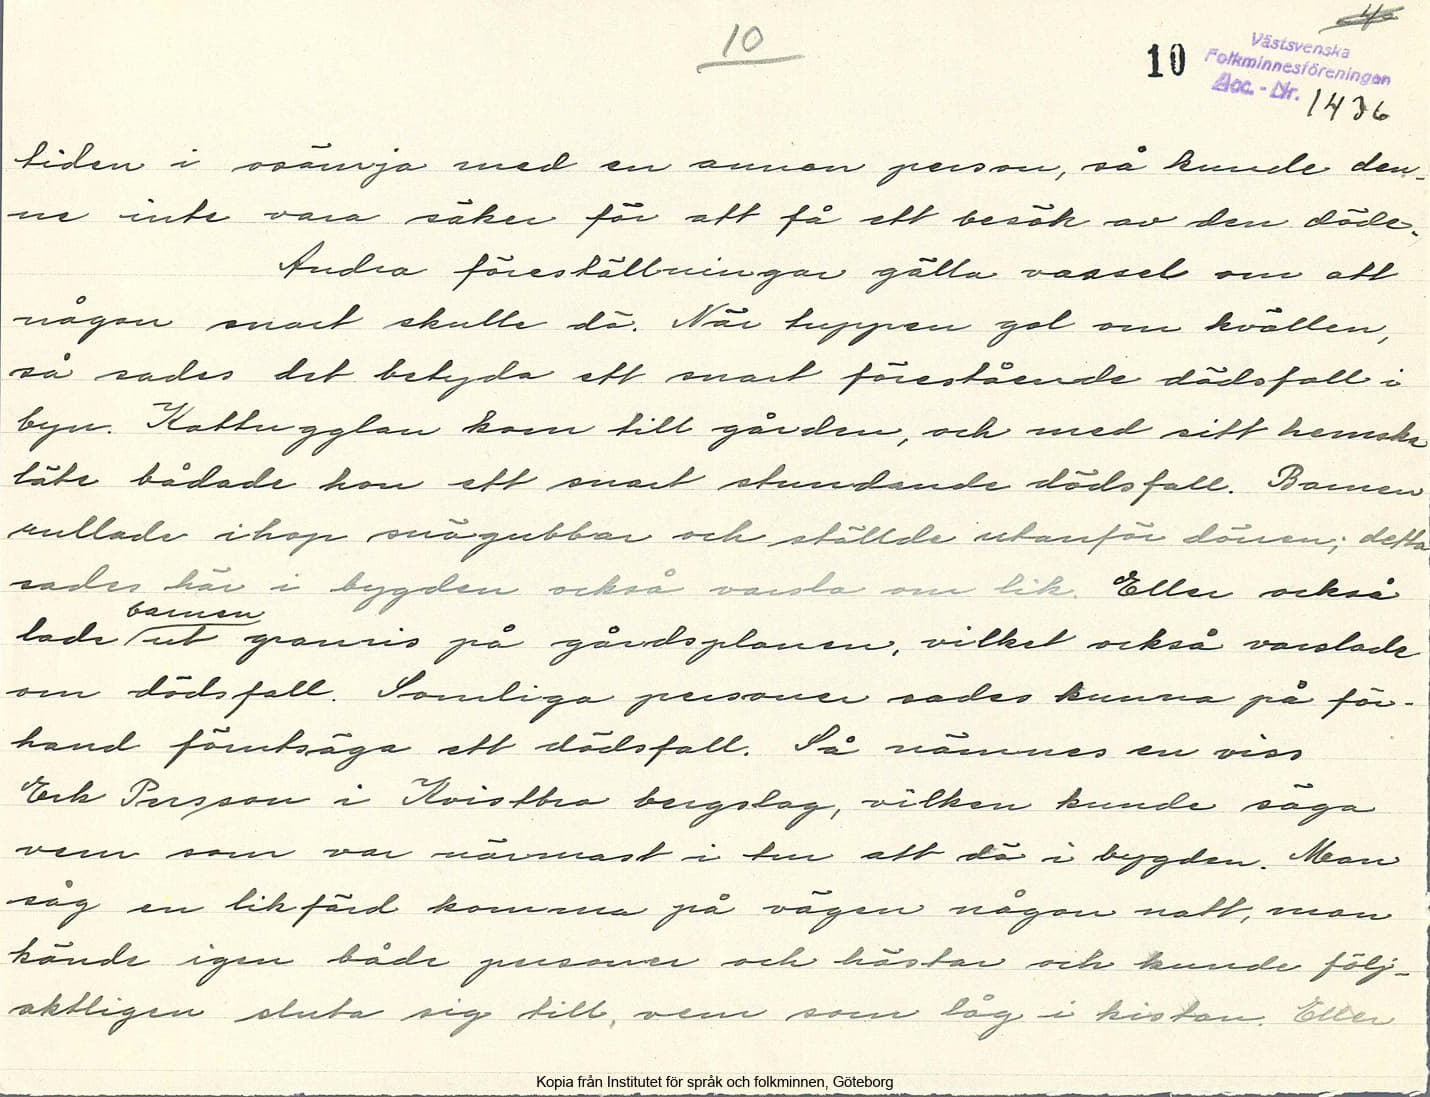 10
10
Västsvenska
Folkminnesföreningen
Acc. - Nr. 1436
tiden i osämja med en annan person, så kunde den-
ne inte vara säker för att få ett besök av den döde.
Andra föreställningar gälla varsel om att
någon snart skulle dö. När tuppen gol om kvällen,
så sades det betyda ett snart förestående dödsfall i
byn. Kattugglan kom till gården, och med sitt hemska
läte bådade hon ett snart stundande dödsfall. Barnen
rullade ihop snögubbar och ställde utanför dörren; detta
sades här i bygden också varsla om lik. Eller också
barnen
lade ut granris på gårdsplanen, vilket också varslade
om dödsfall. Somliga personer sades kunna på för-
hand förutsäga ett dödsfall. Så nämnes en viss
Erk Persson i Kvistbro bergslag, vilken kunde säga
vem som var närmast i tur att dö i bygden. Man
såg en likfärd komma på vägen någon natt, man
kände igen både personer och hästar och kunde följ-
aktligen sluta sig till, vem som låg i kistan. Eller
Kopia från Institutet för språk och folkminnen, Göteborg